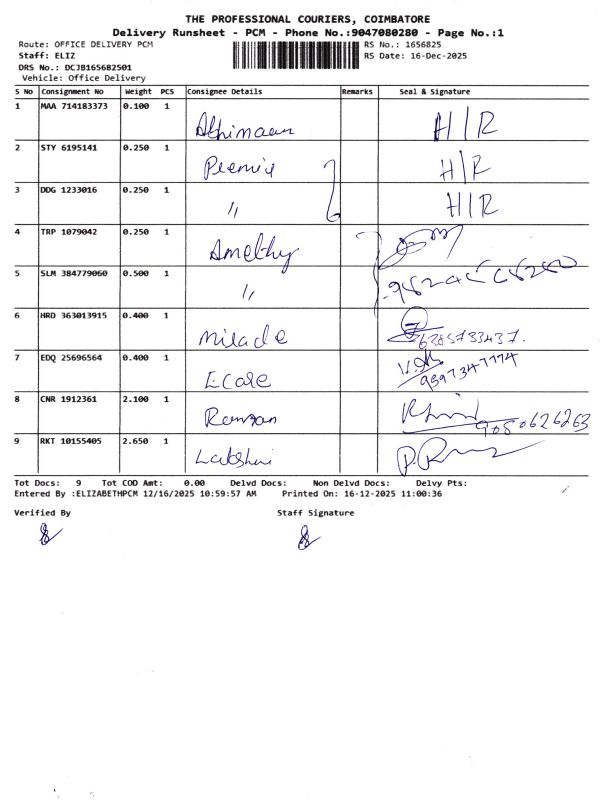 THE PROFESSIONAL COURIERS, COIMBATORE
Delivery Runsheet - PCM - Phone No.:9047080280 - Page No.:1
Route: OFFICE DELIVERY PCM
Staff: ELIZ
DRS No.: DCJB1656B2501
Vehicle: Office Delivery
RS No.: 1656825
RS Date: 16-Dec-2025
S No Consignment No Weight PCS Consignee Details Remarks Seal & Signature
1 MAA 714183373 0.100 1 H/R
2 STY 6195141 0.250 1 H/R
3 DDG 1233016 0.250 1 " H/R
4 TRP 1079042 0.250 1
5 SLM 384779060 0.500 1 "
6 HRD 363013915 0.400 1 Miracle 6285733437.
7 EDQ 25696564 0.400 1 Ecare
8 CNR 1912361 2.100 1 Ramzan 9080626263
9 RKT 10155405 2.650 1
Tot Docs: 9 Tot COD Amt: 0.00 Delvd Docs: Non Delvd Docs: Delvy Pts:
Entered By :ELIZABETHPCM 12/16/2025 10:59:57 AM Printed On: 16-12-2025 11:00:36
Verified By Staff Signature